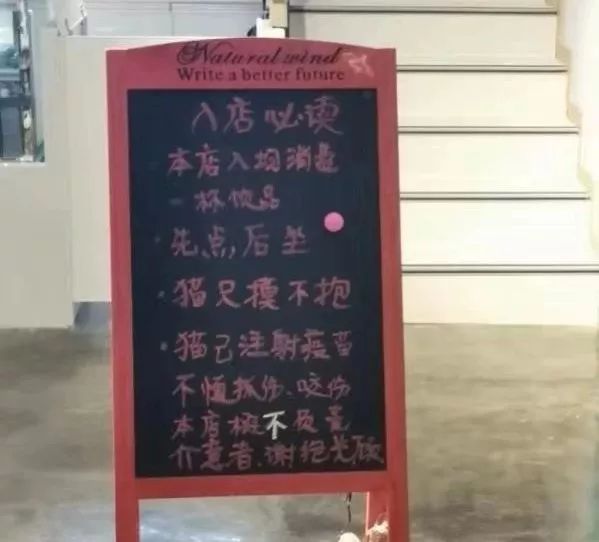 Natural wind
Write a better future
入店必读
本店入坝消是
一杯饮品
·先点,后坐
·猫只摸不抱
·猫已注射疫苗
不慎抓伤、咬伤
本店概不负责
介意者、谢绝光顾